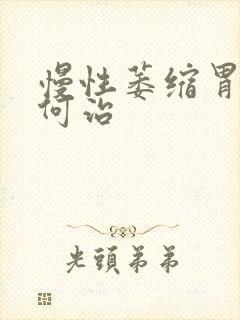 慢性萎缩胃
何治
光頭弟弟